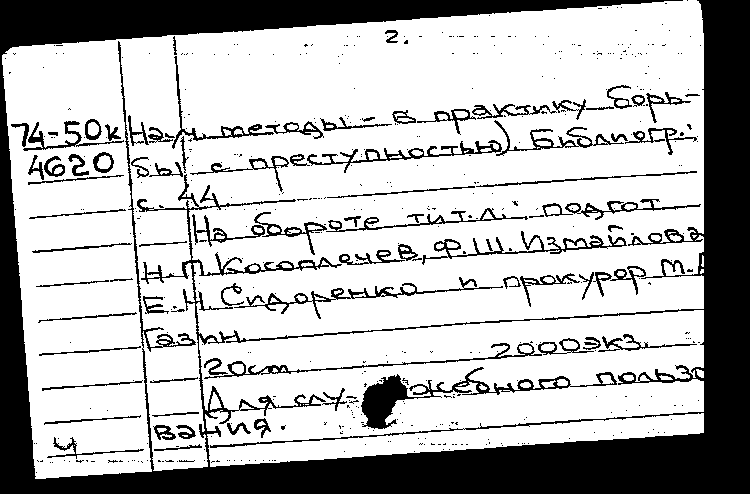 2.
74-50к Науч. методы - в практику борь-
4620 бы с преступностью). Библиогр.:
с. 44.
На обороте тит.л.: подгот.
Н.П. Косоплечев, Ф.Ш. Измайлова
Е.Н. Сидоренко и прокурор М.
Газин.
20см. 2000экз.
Для служебного пользо
вания.
ч